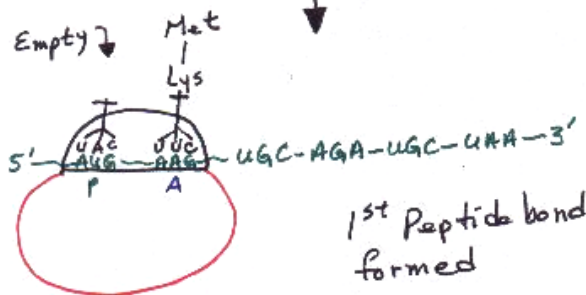 Met
Empty
Lys
UAC UUC
5' AUG AAG UGC-AGA-UGC-UAA-3'
P A
1st Peptide bond
formed